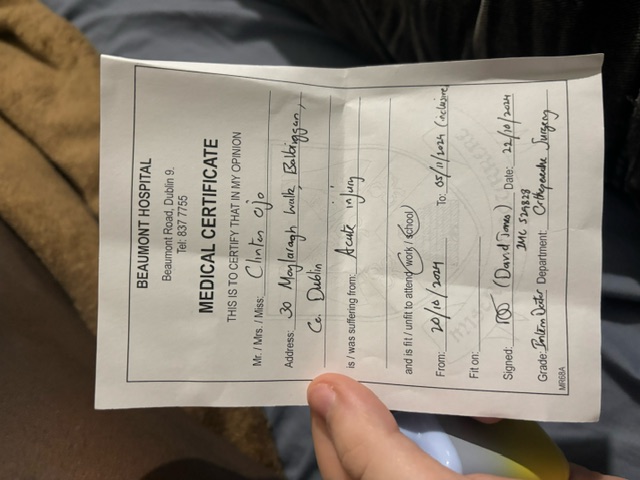 BEAUMONT HOSPITAL
Beaumont Road, Dublin 9.
Tel: 837 7755
MEDICAL CERTIFICATE
THIS IS TO CERTIFY THAT IN MY OPINION
Mr. / Mrs. / Miss: Clinton Ojo
Address: 30 Moylaragh Walk, Balbriggan,
Co. Dublin
is / was suffering from: Acute injury
and is fit / unfit to attend work / school
From: 20/10/2024 To: 05/11/2024 (inclusive
Fit on:
Signed: (David Jones) Date: 22/10/2024
IMC 529828
Grade: Intern Doctor Department: Orthopaedic Surgery
MR68A